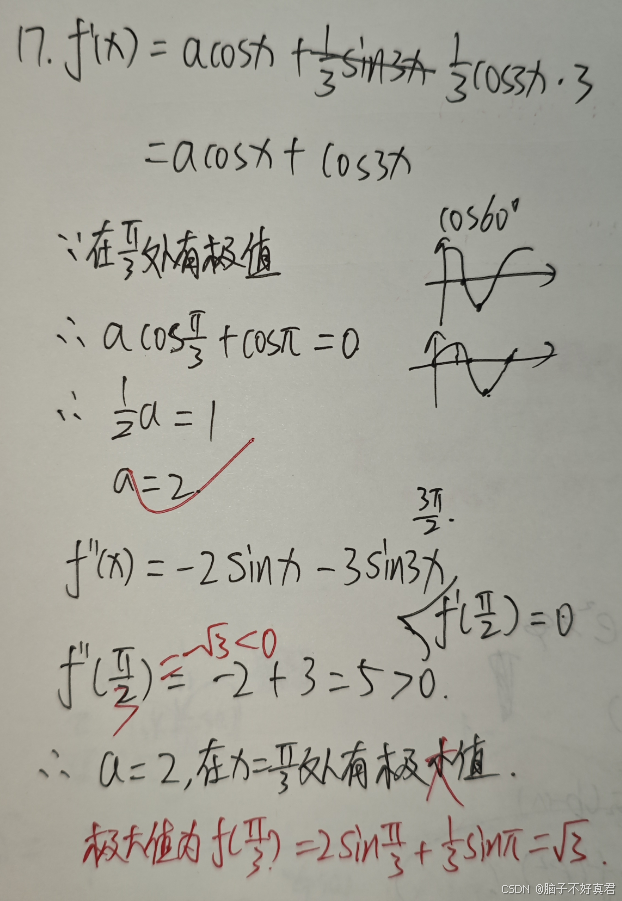 17. f'(x) = acosx + 1/3 sin3x 1/3 cos3x · 3
= acosx + cos3x
cos60°
∵在π/3处有极值
∴ a cosπ/3 + cosπ = 0
∴ 1/2 a = 1
a = 2.
3π/2.
f''(x) = -2sinx - 3sin3x
f'(π/2) = 0
= -√3 < 0
f''(π/2) = -2 + 3 = 5 > 0.
3
∴ a = 2, 在x=π/3处有极小值.
极大值为f(π/3) = 2sinπ/3 + 1/3 sinπ = √3.
CSDN @脑子不好真君